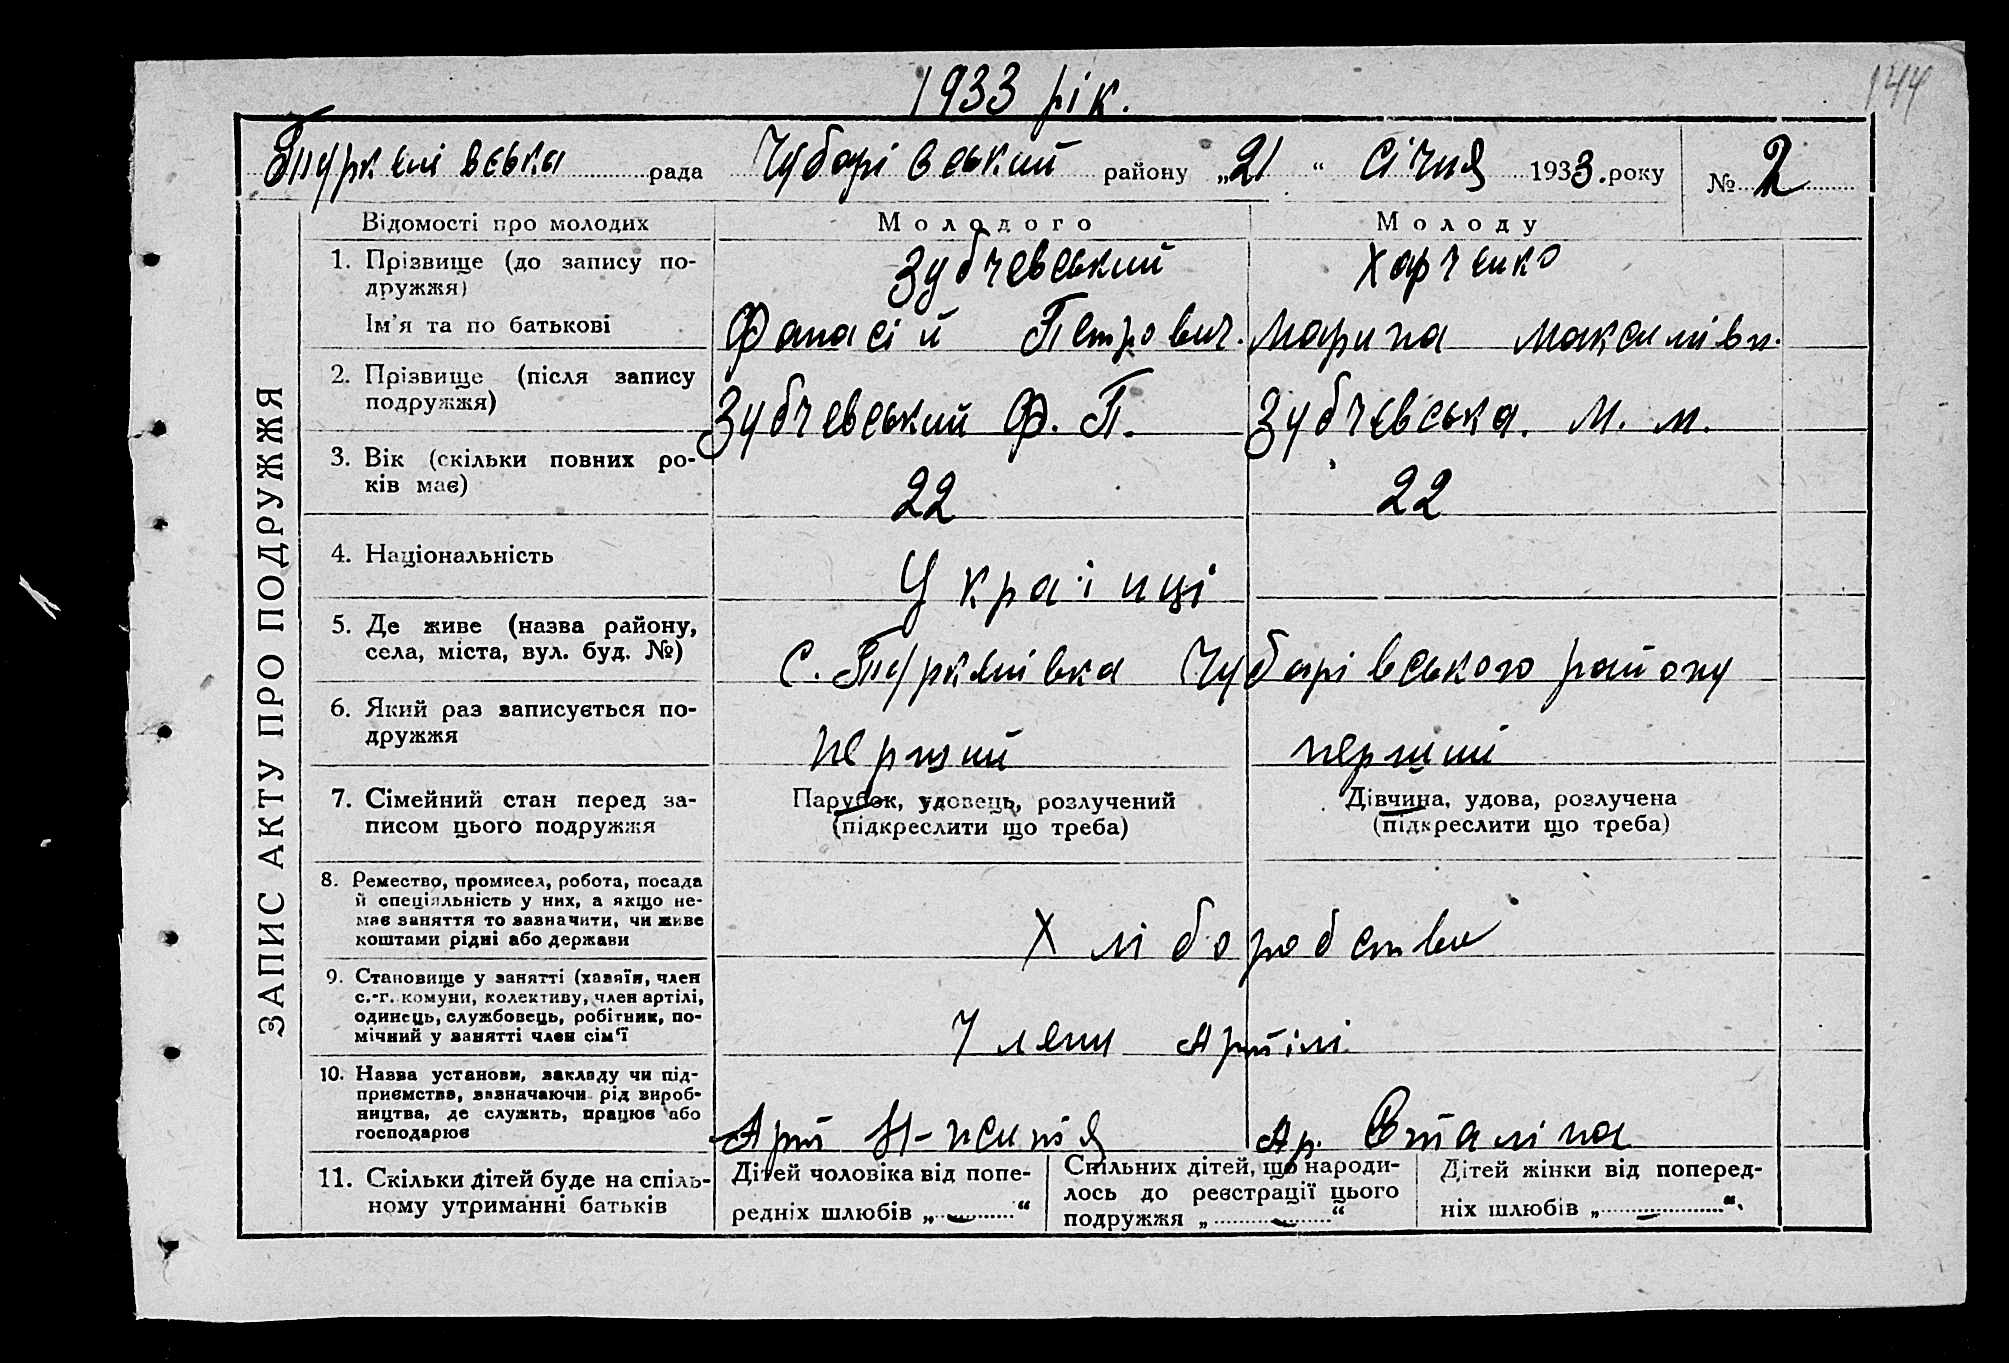 1933 рік.
144
Туркенівська рада Чубарівський району „21“ Січня 1933. року № 2
ЗАПИС АКТУ ПРО ПОДРУЖЖЯ
Відомості про молодих Молодого Молоду
1. Прізвище (до запису по-
дружжя) Зубчевський Харченко
Ім'я та по батькові Фанасій Петрович. Марина Максимівн.
2. Прізвище (після запису
подружжя) Зубчевський Ф. П. Зубчєвська. М. М.
3. Вік (скільки повних ро-
ків має) 22 22
4. Національність Україиці
5. Де живе (назва району,
села, міста, вул. буд. №) С. Туркенівка Чубарівського району
6. Який раз записується по-
дружжя перший перший
7. Сімейний стан перед за-
писом цього подружжя
Парубок, удовець, розлучений
(підкреслити що треба)
Дівчина, удова, розлучена
(підкреслити що треба)
8. Ремество, промисел, робота, посада
й спеціяльність у них, а якщо не-
має заняття то зазначити, чи живе
коштами рідні або держави
Хліборобство
9. Становище у занятті (хазяїн, член
с.-г. комуни, колективу, член артілі,
одинець, службовець, робітник, по-
мічний у занятті член сім'ї
Члени Артілі
10. Назва установи, закладу чи під-
приємства, зазначаючи рід вироб-
ництва, де служить, працює або
господарює
Арт Ар. Сталіна
11. Скільки дітей буде на спіль-
ному утриманні батьків
Дітей чоловіка від попе-
редніх шлюбів „ - “
Спільних дітей, що народи-
лось до реєстрації цього
подружжя „ - “
Дітей жінки від поперед-
ніх шлюбів „ - “.